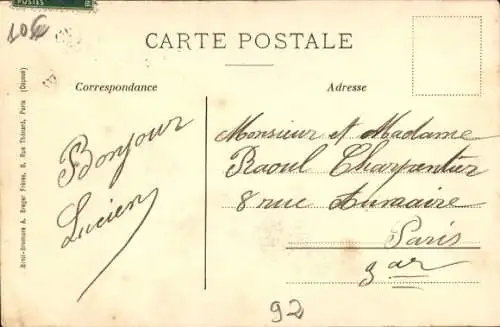 POSTES
10€
CARTE POSTALE
Correspondance
Adresse
Bonjour
Lucien
Monsieur et Madame
Raoul Charpentier
8 rue Aumaire
Paris
3 ar
92
Simili-Bromure A. Breger Frères, 9, Rue Thénard, Paris (Déposé)